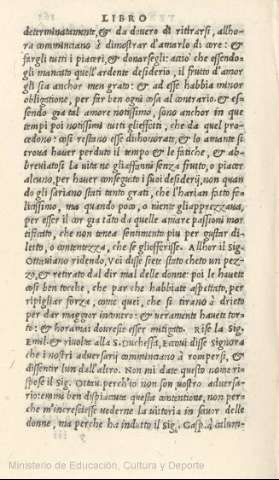 LIBRO
determinatamente, & da douero di ritirarsi, allho-
ra comminciano à dimostrar d'amarlo di core: &
fargli tutti i piaceri, & donarsegli: acciò che essendo-
gli mancato quell'ardente desiderio, il frutto d'amor
gli sia anchor men grato: & ad esse habbia minor
obligatione, per far ben ogni cosa al contrario. & es-
sendo gia tal amore notissimo, sono anchor in que
tempi poi notissimi tutti gli effetti, che da quel pro-
cedono: così restano esse dishonorate, & lo amante si
troua hauer perduto il tempo & le fatiche, & ab-
breuiatosi la uita ne gli affanni senza frutto, o piacer
alcuno, per hauer conseguiti i suoi desiderij, non quan
do gli sariano stati tanto grati, che l'harian fatto fe-
licissimo, ma quando poco, o niente gli apprezzaua,
per esser il cor gia tãto da quelle amare passioni mor
tificato, che non tenea sentimento piu per gustar di-
letto, o contentezza, che se gli offerisse. Allhor il Sig.
Ottauiano ridendo, Voi disse siete stato cheto un pez-
zo, & retirato dal dir mal delle donne: poi le hauete
così ben tocche, che par che habbiate aspettato, per
ripigliar forza, come quei, che si tirano à drieto
per dar maggior incontro: & ueramente hauete tor-
to: & horamai doureste esser mitigato. Rise la Sig.
Emil. & riuolta alla S. Duchessa, Eccoui disse signora
che i nostri aduersarij comminciano à rompersi, &
dissentir l'un dall'altro. Non mi date questo nome ri-
spose il Sig. Ottau. perch'io non son uostro aduersa-
rio: emmi ben dispiaciuta questa contentione, non per-
che m'increscesse uederne la uittoria in fauor delle
donne, ma perche ha indotto il Sig. Gasp. à calum-
Ministerio de Educación, Cultura y Deporte